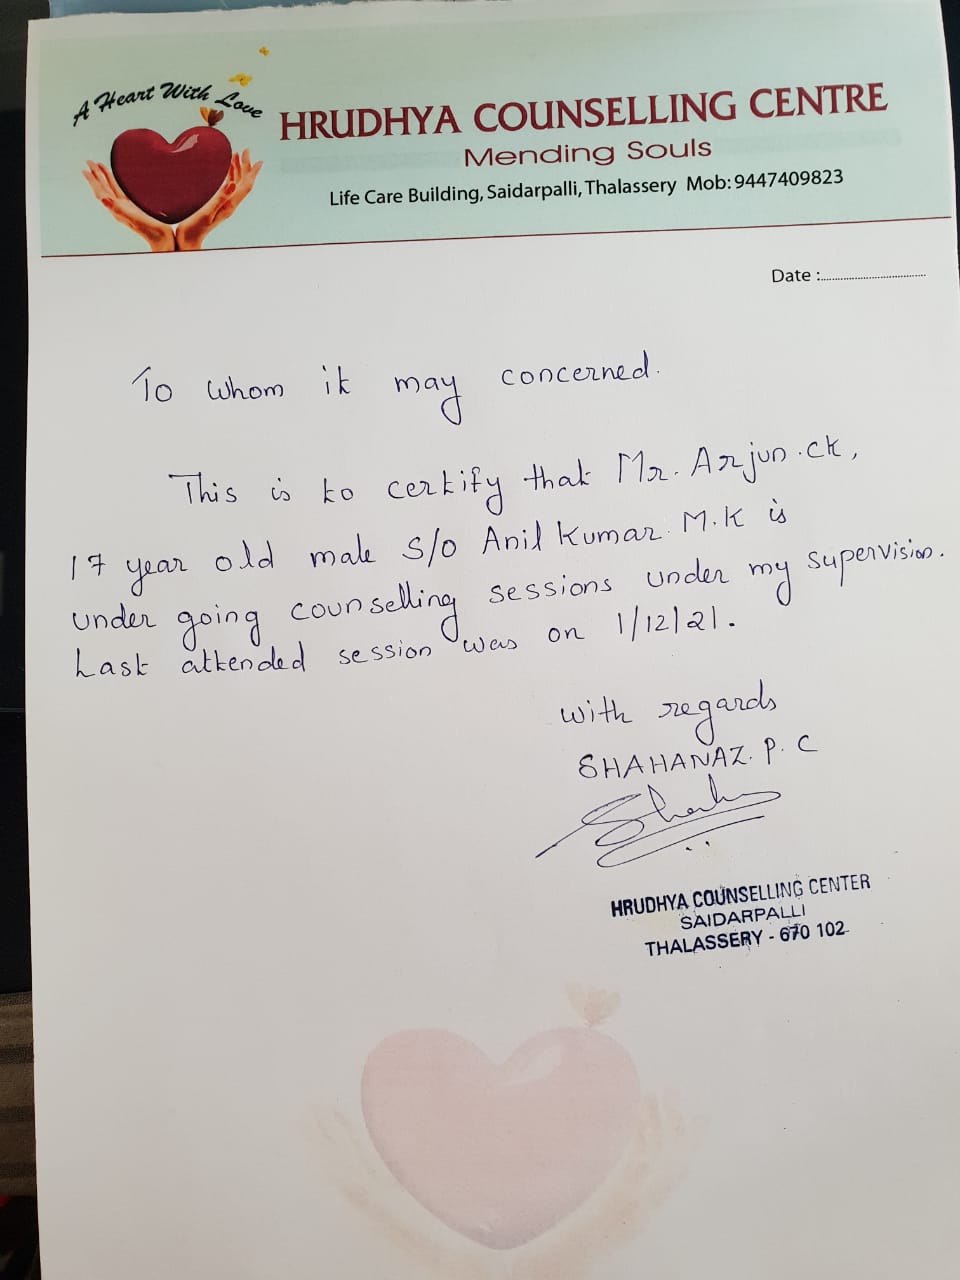 A Heart With Love
HRUDHYA COUNSELLING CENTRE
Mending Souls
Life Care Building, Saidarpalli, Thalassery Mob: 9447409823
Date :..........................................
To whom it may concerned.
This is to certify that Mr. Arjun.ck,
17 year old male S/o Anil Kumar M.K is
under going counselling sessions under my supervision.
Last attended session was on 1/12/21.
with regards
SHAHANAZ. P. C
HRUDHYA COUNSELLING CENTER
SAIDARPALLI
THALASSERY - 670 102